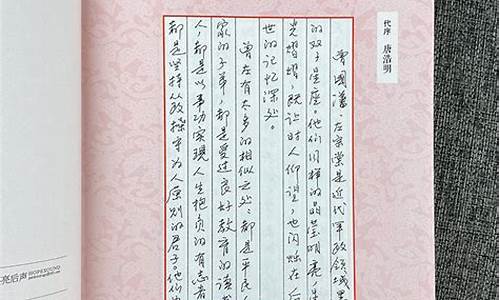 代序 唐浩明
曾國藩、左宗棠是近代军政领域里
的双子星座。他们同样的晶莹明亮、
光耀耀,既让时人仰望,也闪烁在后
世的记忆深处。
曾左有太多的相似之处:都是平民
家的子弟,都是受过良好教育的读书
人,都是以事功实现人生抱负的有志者
都是坚持从政操守为人原则的君子。他们
亮后声 HOPESOUND